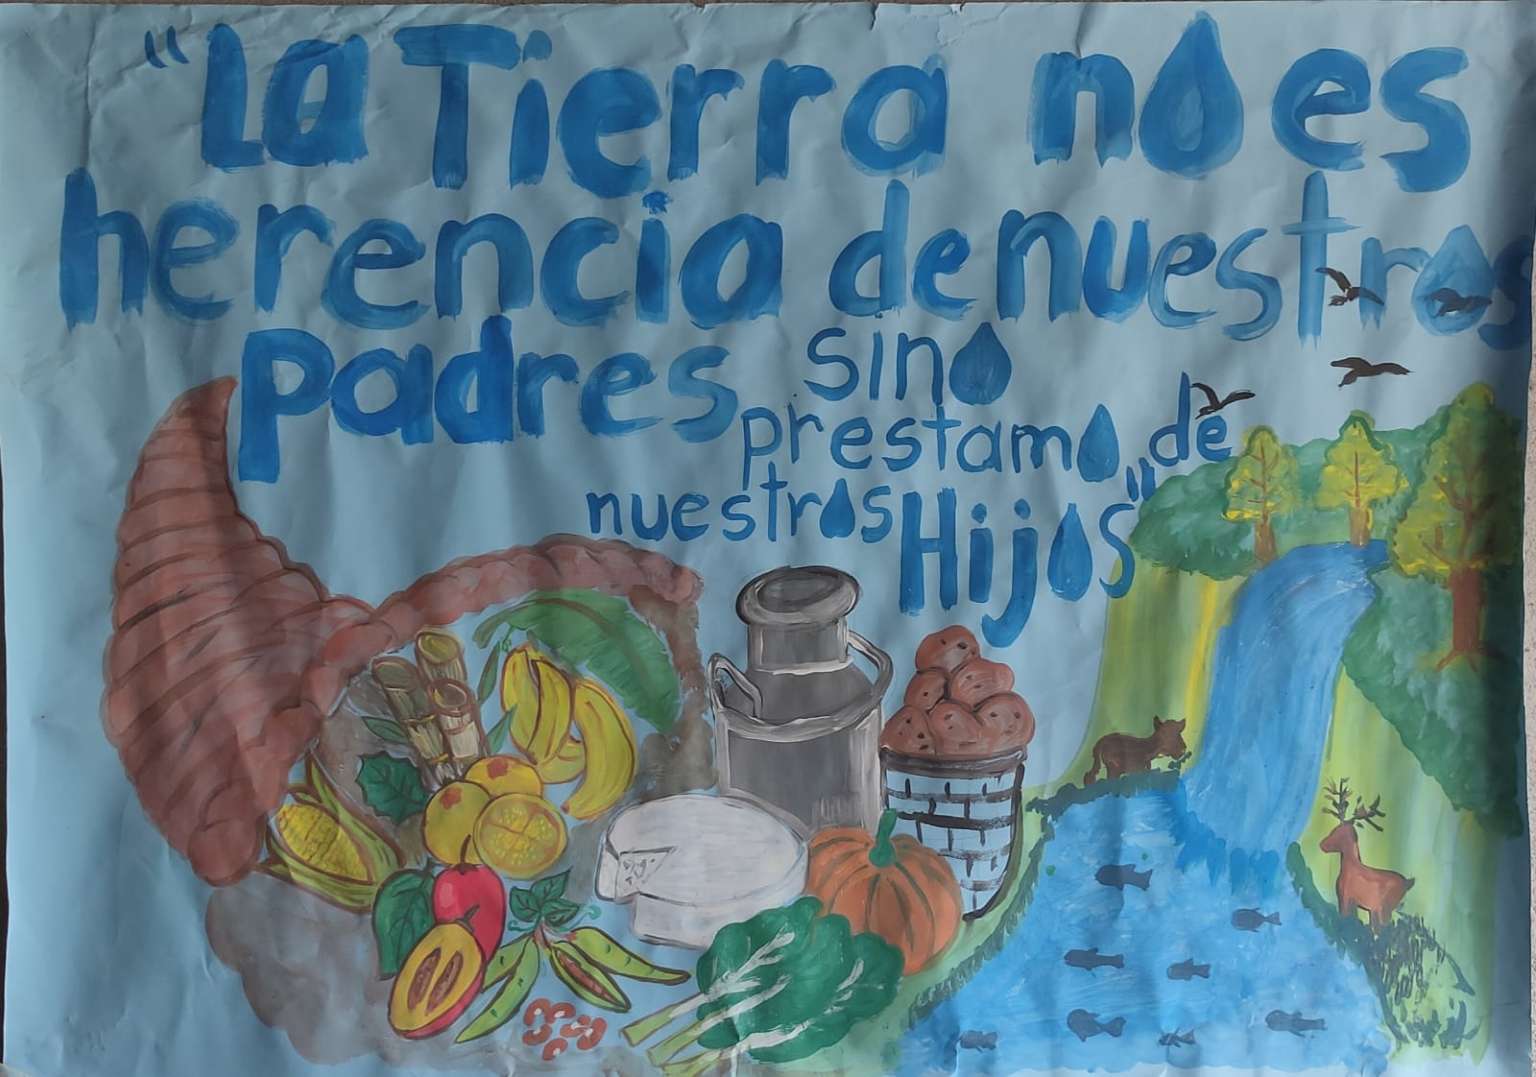 "La Tierra no es
herencia de nuestros
padres sino
prestamo de
nuestros Hijos"